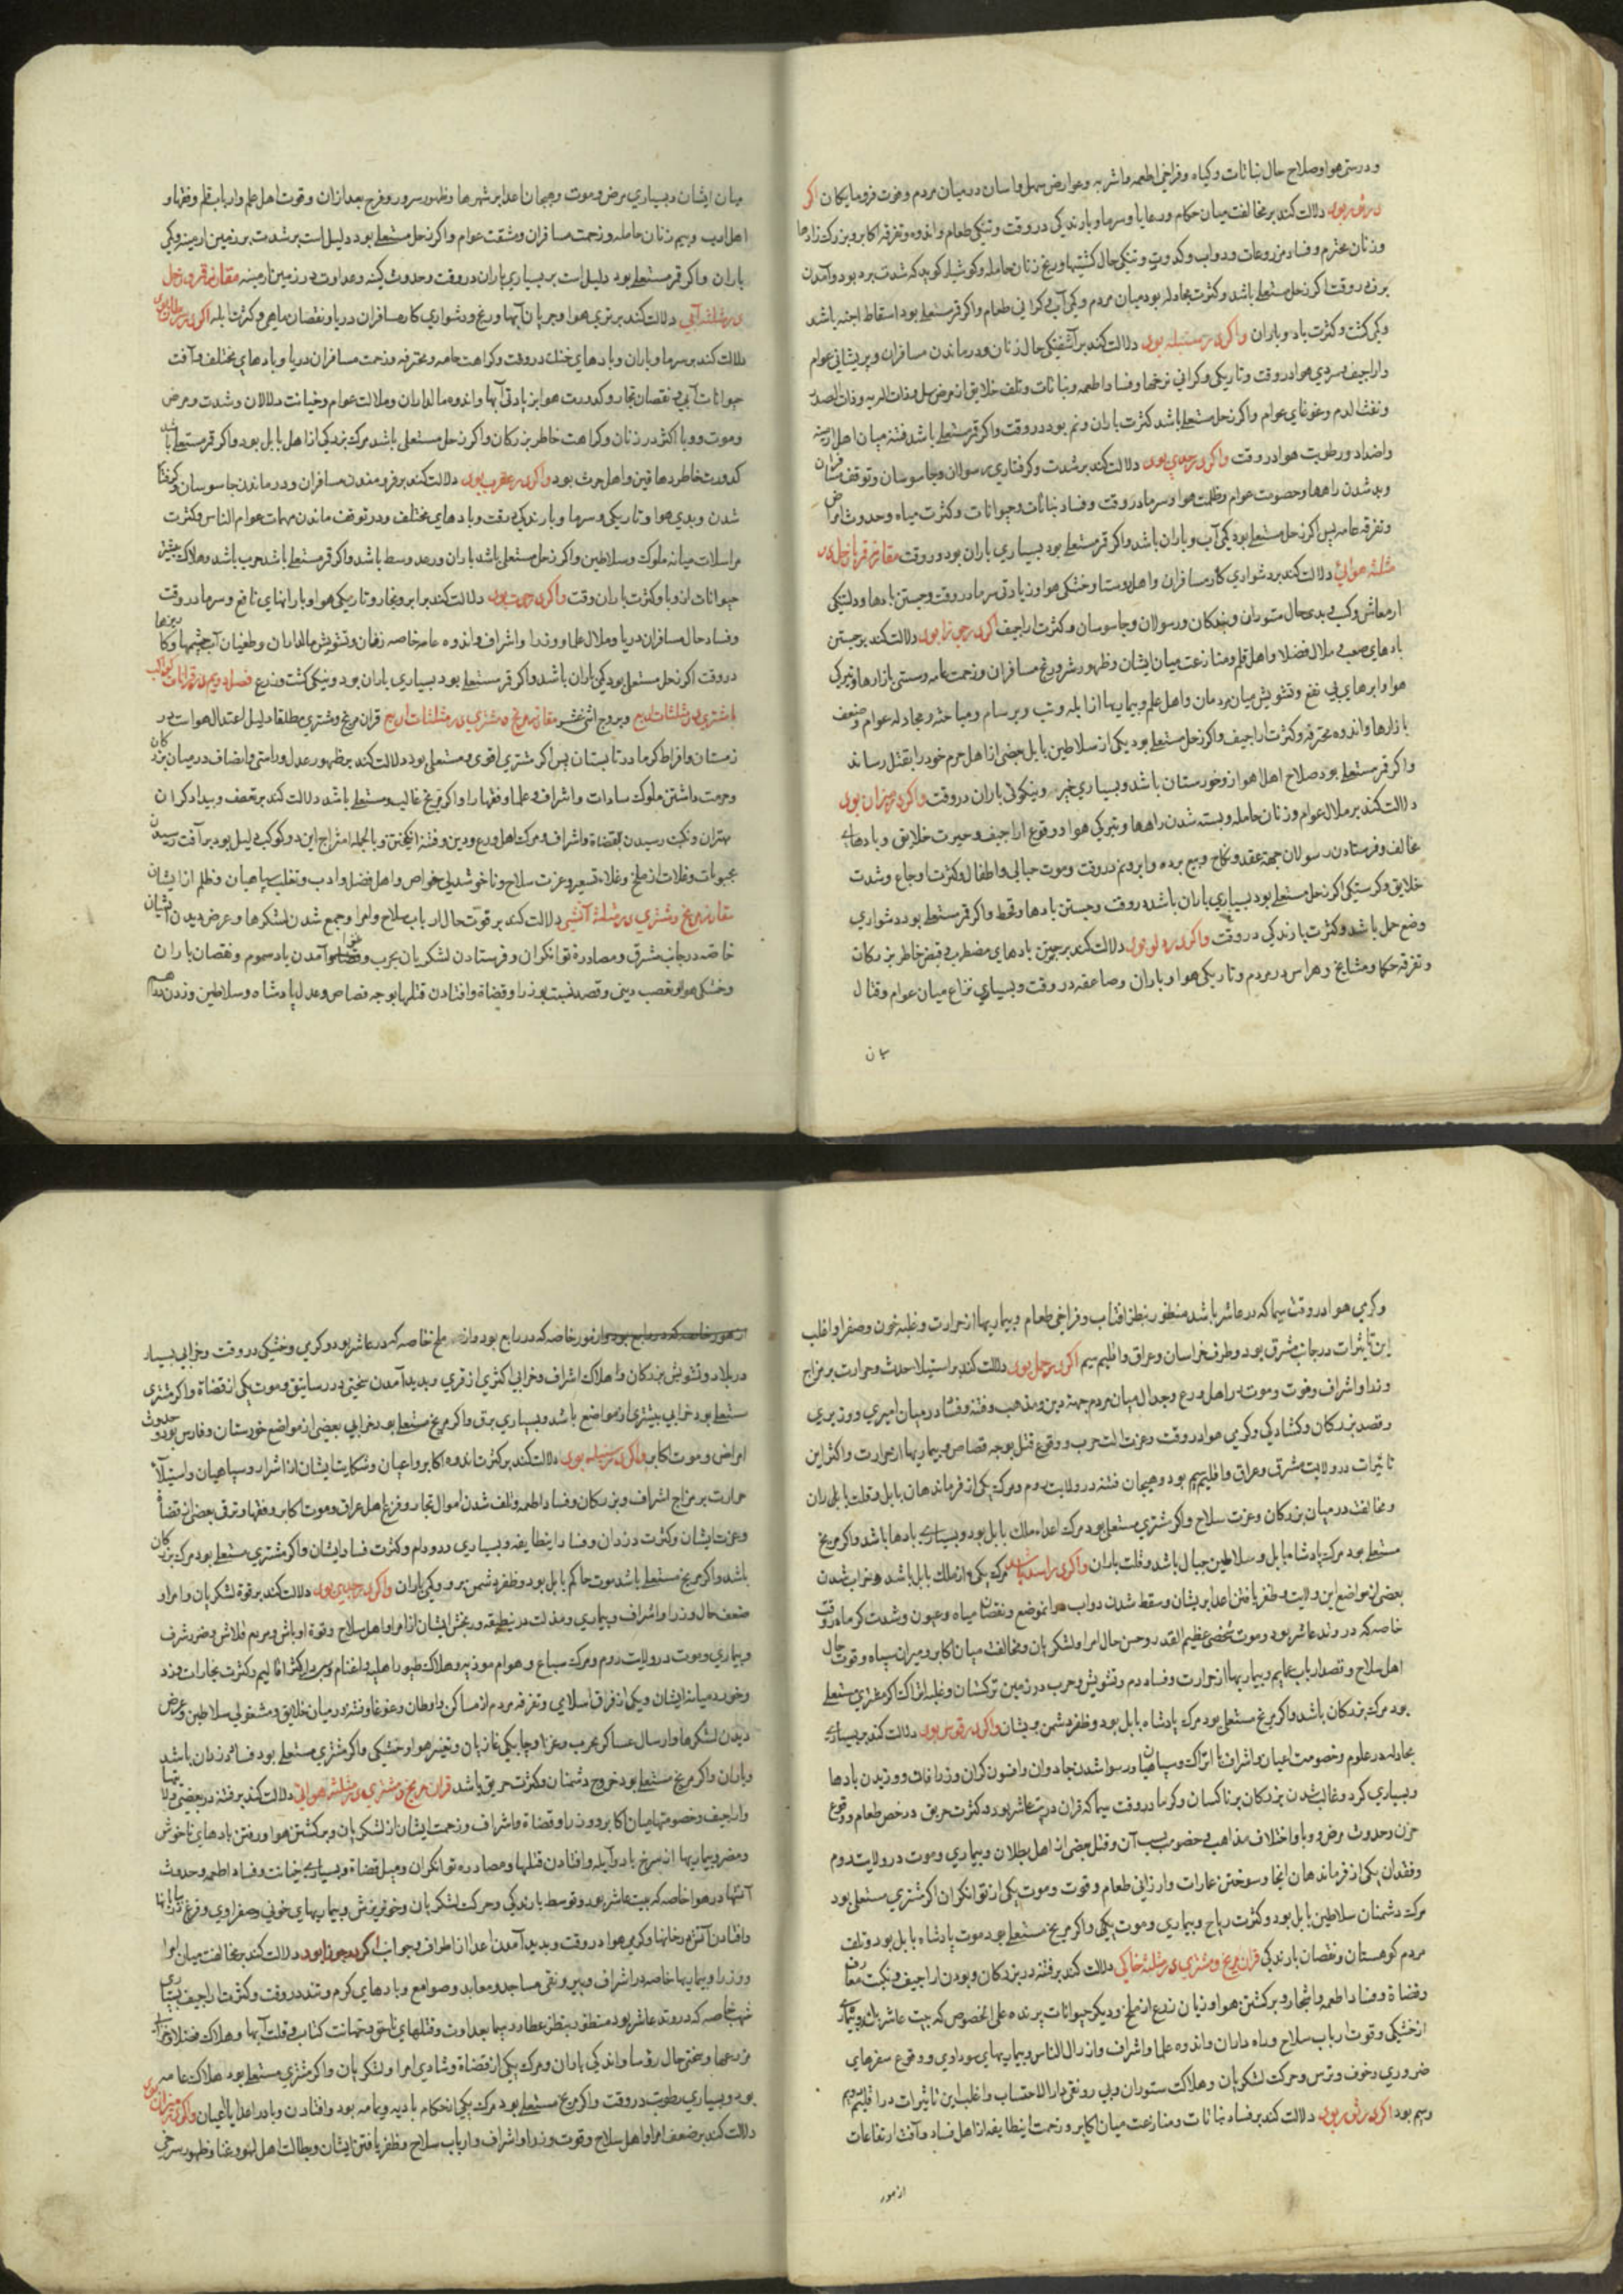 و درستی هوا و صلاح حال نباتات و کیاه و فراخی اطعمه و اشربه و عوارض سهل و اسان در میان مردم و موت فرومایکان اکر
در ثور بود دلالت کند بر مخالفت میان حکام و رعایا و سرما و بارندکی در وقت و تنکی طعام و اندوه و تفرقه اکابر و بزرک زادها
و زنان محترم و فساد مزروعات و دواب و کدورت و تنکی حال کشتیها و رنج زنان حامله و کوشیار کوید که شدت برد بود و آمدن
برف در وقت اکر زحل مستعلی باشد و کثرت مجادله بود میان مردم و کمی آب و کرانی طعام و اکر قمر مستعلی بود اسقاط اجنه باشد
و کمی کشت و کثرت باد و باران واکر در سنبله بود دلالت کند بر آشفتکی حال زنان و درماندن مسافران و پریشانی عوام
و اراجیف و سردی هوا در وقت و تاریکی و کرانی نرخها و فساد اطعمه و نباتات و تلف خلایق از مرض سل و ذات الریه و ذات الصدر
و نفث الدم و غوغای عوام و اکر زحل مستعلی باشد کثرت باران و نم بود در وقت و اکر قمر مستعلی باشد فتنه میان اهل ارمنیه
و اضداد و رطوبت هوا در وقت واکر در جدی بود دلالت کند بر شدت و کرفتاری رسولان و جاسوسان و توقف مسافران
و بد شدن راهها و خصومت عوام و ظلمت هوا و سرما در وقت و فساد نباتات و حیوانات و کثرت میاه و حدوث امراض
و تفرقه عامه پس اکر زحل مستعلی بود کمی آب و باران باشد و اکر قمر مستعلی بود بسیاری باران بود در وقت مقارنه قمر با زحل در
مثلثه هوایی دلالت کند بر دشواری کار مسافران و اهل روستا و خشکی هوا و زیادتی سرما در وقت و جستن بادها و دلتنکی
از معاش و کسب و بدی حال ستوران و بندکان و رسولان و جاسوسان و کثرت اراجیف اکر در جوزا بود دلالت کند بر جستن
بادهای صعب و ملال فضلا و اهل قلم و منازعت میان ایشان و ظهور شر و رنج مسافران و زحمت عامه و سستی بازارها و تیرکی
هوا و ابرهای بی نفع و تشویش میان مردمان و اهل علم و بیماریها از ابله و تب و برسام و مباحثه و مجادله عوام و ضعف
بازارها و اندوه محترفه و کثرت اراجیف و اکر زحل مستعلی بود یکی از سلاطین بابل بعضی از اهل حرم خود را بقتل رساند
و اکر قمر مستعلی بود صلاح اهل اهواز و خوزستان باشد و بسیاری خیر و نیکوئی باران در وقت واکر در میزان بود
دلالت کند بر ملال عوام و زنان حامله و بسته شدن راهها و تیرکی هوا و وقوع اراجیف و حیرت خلایق و بادهاء
مخالف و فرستادن رسولان جهة عقد و نکاح و بیع برده و ابر و نم در وقت و موت حبالی و اطفال و کثرت اوجاع و شدت
خلایق و کرسنکی اکر زحل مستعلی بود بسیاری باران باشد در وقت و جستن بادها و قحط و اکر قمر مستعلی بود دشواری
وضع حمل باشد و کثرت بارندکی در وقت واکر در دلو بود دلالت کند بر جستن بادهای مضطرب و قبض خاطر بزرکان
و تفرقه حکما و مشایخ و هراس در مردم و تاریکی هوا و باران و صاعقه در وقت و بسیاری نزاع میان عوام و قتال
میان
میان ایشان و بسیاری مرض و موت و هیجان اعدا بر شهرها و ظهور سرور و فرح بعد از ان و قوت اهل علم و ارباب قلم و فقها و
اهل ادب و بیم زنان حامله و زحمت مسافران و مشقت عوام و اکر زحل مستعلی بود دلیل است بر شدت برد زمین ارمنیه و کمی
باران و اکر قمر مستعلی بود دلیل است بر بسیاری باران در وقت و حدوث کینه و عداوت در زمین ارمنیه مقارنه قمر و زحل
در مثلثه آبی دلالت کند بر تری هوا و جریان آبها و رنج و دشواری کار مسافران دریا و نقصان ماهی و کثرت ابله اکر در سرطان بود
دلالت کند بر سرما و باران و بادهای خنک در وقت و کراهت عامه و محترفه و زحمت مسافران دریا و بادهای مختلف و آفت
حیوانات آبی و نقصان بخار و کدورت هوا بزیادتی آبها و اندوه مالداران و ملالت عوام و خیانت دلالان و شدت و مرض
و موت و وبا اکثر در زنان و کراهت خاطر بزرکان و اکر زحل مستعلی باشد مرک بزرکی از اهل بابل بود و اکر قمر مستعلی باشد
کدورت خاطر دهاقین و اهل حرث بود واکر در عقرب بود دلالت کند بر فروماندن مسافران و درماندن جاسوسان و کرفتار
شدن و بدی هوا و تاریکی و سرما و بارندکی در وقت و بادهای مختلف و در توقف ماندن مهمات عوام الناس و کثرت
مراسلات میانه ملوک و سلاطین و اکر زحل مستعلی باشد باران و رعد وسط باشد و اکر قمر مستعلی باشد حرب باشد و هلاک بیشتر
حیوانات از وبا و کثرت باران وقت واکر در حوت بود دلالت کند بر ابر و بخار و تاریکی هوا و بارانهای نافع و سرما در وقت
و فساد حال مسافران دریا و ملال علما و وزرا و اشراف و اندوه عامه خاصه زنان و تشویش مالداران و طغیان آب چشمها و کاریزها
در وقت اکر زحل مستعلی بود کمی باران باشد و اکر قمر مستعلی بود بسیاری باران بود و نیکی کشت و زرع فصل دویم در قرانات کواکب
با مشتری در مثلثات اربع و بروج اثنی عشر مقارنه مریخ و مشتری در مثلثات اربع قران مریخ و مشتری مطلقا دلیل اعتدال هواست در
زمستان و افراط کرما در تابستان پس اکر مشتری اقوی و مستعلی بود دلالت کند بر ظهور عدل و راستی و انصاف در میان بزرکان
و حرمت داشتن ملوک سادات و اشراف و علما و فقها را و اکر مریخ غالب و مستعلی باشد دلالت کند بر تعصب و بیداد کران
مهتران و نکبت رسیدن بقضاة و اشراف و مرک اهل ورع و دین و فتنه انکیختن و بالجمله امتزاج این دو کوکب دلیل بود بر آفت رسیدن
بحبوبات و غلات از ملخ و غلاء تسعیر و عزت سلاح و ناخوشدلی خواص و اهل فضل و ادب و تغلب سپاهیان و ظلم از ایشان
مقارنه مریخ و مشتری در مثلثه آتشی دلالت کند بر قوت حال ارباب سلاح و امرا و جمع شدن لشکرها و عرض دیدن ایشان
خاصه در جانب مشرق و مصادره توانکران و فرستادن لشکریان بحرب و آمدن باد سموم و نقصان باران
و خشکی هوا و تعصب دینی و قصد نسبت بوزرا و قضاة و افتادن قتلها بوجه قصاص و عدل پادشاه و سلاطین و زدن درهم
و کرمی هوا در وقت سیما که در عاشر باشد منظور بنظر افتاب و فراخی طعام و بیماریها از حرارت و غلبه خون و صفرا و اغلب
این تاثیرات در جانب مشرق بود و طرف خراسان و عراق و اقلیم سیم اکر در حمل بود دلالت کند بر استیلا حدت و حرارت بر مزاج
وزرا و اشراف و فوت و موت در اهل ورع و جدال میان مردم جهة دین و مذهب و فتنه و فساد در میان امیری و وزیری
و قصد بزرکان و کشادکی و کرمی هوا در وقت و عزت الت حرب و وقوع قتل بوجه قصاص و بیماریها از حرارت و اکثر این
تاثیرات در ولایت مشرق و عراق و اقلیم سیم بود و هیجان فتنه در ولایت روم و مرک یکی از فرماندهان بابل و قلت باران
و مخالفت در میان بزرکان و عزت سلاح و اکر مشتری مستعلی بود مرک اعداء ملک بابل بود و بسیاری بادها باشد و اکر مریخ
مستعلی بود مرک پادشاه بابل و سلاطین جبال باشد و قلت باران واکر در اسد باشد مرک یکی از ملک بابل باشد و خراب شدن
بعضی از مواضع این ولایت و ظفر یافتن اعدا بر یشان و سقط شدن دواب در انموضع و نقصان میاه و عیون و شدت کرما در وقت
خاصه که در وتد عاشر بود و موت شخصی عظیم القدر و حسن حال امرا و لشکریان و مخالفت میان اکابر و میران سپاه و قوت حال
اهل سلاح و قصد ارباب عمایم و بیماریها از حرارت و فساد دم و تشویش و حرب در زمین ترکستان و غلبه اتراک اکر مشتری مستعلی
بود مرک بزرکان باشد و اکر مریخ مستعلی بود مرک پادشاه بابل بود و ظفر دشمن بریشان واکر در قوس بود دلالت کند بر بسیاری
مجادله در علوم و خصومت اعیان و اشراف با اتراک و سپاهیان و رسوا شدن جادوان و افسون کران و زراقان و وزیدن بادها
و بسیاری کرد و غالب شدن بزرکان بر ناکسان و کرما در وقت سیما که قران در بیت عاشر بود و کثرت حریق و رخص طعام و وقوع
حزن و حدوث مرض و وبا و اختلاف مذاهب و خصومت بسبب آن و قتل بعضی از اهل بطلان و بیماری و موت در ولایت روم
و فقدان یکی از فرماندهان انجا و سوختن عمارات و ارزانی طعام و قوت و موت یکی از توانکران اکر مشتری مستعلی بود
مرک دشمنان سلاطین بابل بود و کثرت ریاح و بیماری و موت یکی و اکر مریخ مستعلی بود موت پادشاه بابل بود و تلف
مردم کوهستان و نقصان بارندکی قران مریخ و مشتری در مثلثه خاکی دلالت کند بر فتنه در بزرکان و بودن اراجیف و نکبت معارف
و قضاة و فساد اطعمه و اشجار و برکشتن هوا و زیان زرع از ملخ و دیکر حیوانات پرنده علی الخصوص که بیت عاشر باشد و بیماری
از خشکی و قوت ارباب سلاح و راه داران و اندوه علما و اشراف و ارذال الناس و بیماریهای سوداوی و وقوع سفرهای
ضروری و خوف و ترس و حرکت لشکریان و هلاکت ستوران و بی رونقی دار الاحتساب و اغلب این تاثیرات در اقلیم دویم
و سیم بود اکر در ثور بود دلالت کند بر فساد نباتات و منازعت میان اکابر و زحمت اینطایفه از اهل فساد و آفت ارتفاعات
از مور
از مور خاصه که در رابع بود و از ملخ خاصه که در عاشر بود و کرمی و خشکی در وقت و خرابی بسیار
در بلاد و تشویش بزرکان و اهلاک اشراف و خرابی اکثری از قری و پدید آمدن سختی در رساتیق و موت یکی از قضاة و اکر مشتری
مستعلی بود خرابی بیشتری از مواضع باشد و بسیاری برق و اکر مریخ مستعلی بود خرابی بعضی از مواضع خوزستان و فارس بود و حدوث
امراض و موت اکابر واکر در سنبله بود دلالت کند بر کثرت اندوه اکابر و اعیان و شکایت ایشان از اشرار و سپاهیان و استیلاء
حرارت بر مزاج اشراف و بزرکان و فساد اطعمه و تلف شدن اموال تجار و فزع اهل عراق و موت اکابر و فقها و ترقی بعضی از قضاة
و عزت ایشان و کثرت دزدان و فساد اینطایفه و بسیاری دد و دام و کثرت فساد ایشان و اکر مشتری مستعلی بود مرک بزرکان
باشد و اکر مریخ مستعلی باشد موت حاکم بابل بود و ظفر دشمن برو و کمی باران واکر در جدی بود دلالت کند بر قوة لشکریان و امرا و
ضعف حال وزرا و اشراف و بیماری و مذلت در ینطبقه و رنجش ایشان از امرا و اهل سلاح و قوة اوباش و مردم قلاش و ضرر شرف
و بیماری و موت در ولایت روم و مرک سباع و هوام موذیه و هلاک طیور اهلیه و اغنام و کثرت بخارات و دزد
و خون در میانه ایشان و یکی از فرق اسلامی و تفرقه مردم از مساکن و اوطان و غوغا و فتنه در میان خلایق و مشغولی سلاطین و عرض
دیدن لشکرها و ارسال عساکر بحرب و غزا و چابکی غازیان و تغییر هوا و خشکی و اکر مشتری مستعلی بود فساد دزدان باشد
و باران و اکر مریخ مستعلی بود خروج دشمنان و کثرت حریق باشد قران مریخ و مشتری در مثلثه هوایی دلالت کند بر فتنه در بعضی ولایتها
و اراجیف و خصومتها میان اکابر و وزرا و قضاة و اشراف و زحمت ایشان از لشکریان و برکشتن هوا و رفتن بادهای ناخوش
و مضر و بیماریها از سرخ باد و آبله و افتادن قتلها و مصادره توانکران و میل قضاة و بسیاری خیانت و فساد اطعمه و حدوث
آتشها در هوا خاصه که بیت عاشر بود و توسط بارندکی و حرکت لشکریان و خونریزش و بیماریهای خونی و صفراوی و فزع
و افتادن آتش در خانها و کرمی هوا در وقت و پدید آمدن اعدا از اطراف و جوانب اکر در جوزا بود دلالت کند بر مخالفت میان امرا
و وزرا و بیماریها خاصه در اشراف و بی رونقی مساجد و معابد و صوامع و بادهای کرم و تند در وقت و کثرت اراجیف
شهب خاصه که در وتد عاشر بود منظور بنظر عطارد سیما بعداوت و قتلهای ناحق و تهمانت کتاب و قلت آبها و هلاک فضلا
مزرعها و سختی حال رؤسا و اندکی باران و مرک یکی از قضاة و شادی امرا و لشکریان و اکر مشتری مستعلی بود هلاک عامه
بود و بسیاری رطوبت در وقت و اکر مریخ مستعلی بود مرک یکی از حکام بادیه و یمامه بود و افتادن وبا در اعدا با اعیان واکر در میزان بود
دلالت کند بر ضعف امرا و اهل سلاح و قوت وزرا و اشراف و ارباب سلاح و ظفر یافتن ایشان و بطالت اهل لهو و غنا و ظهور سرخی